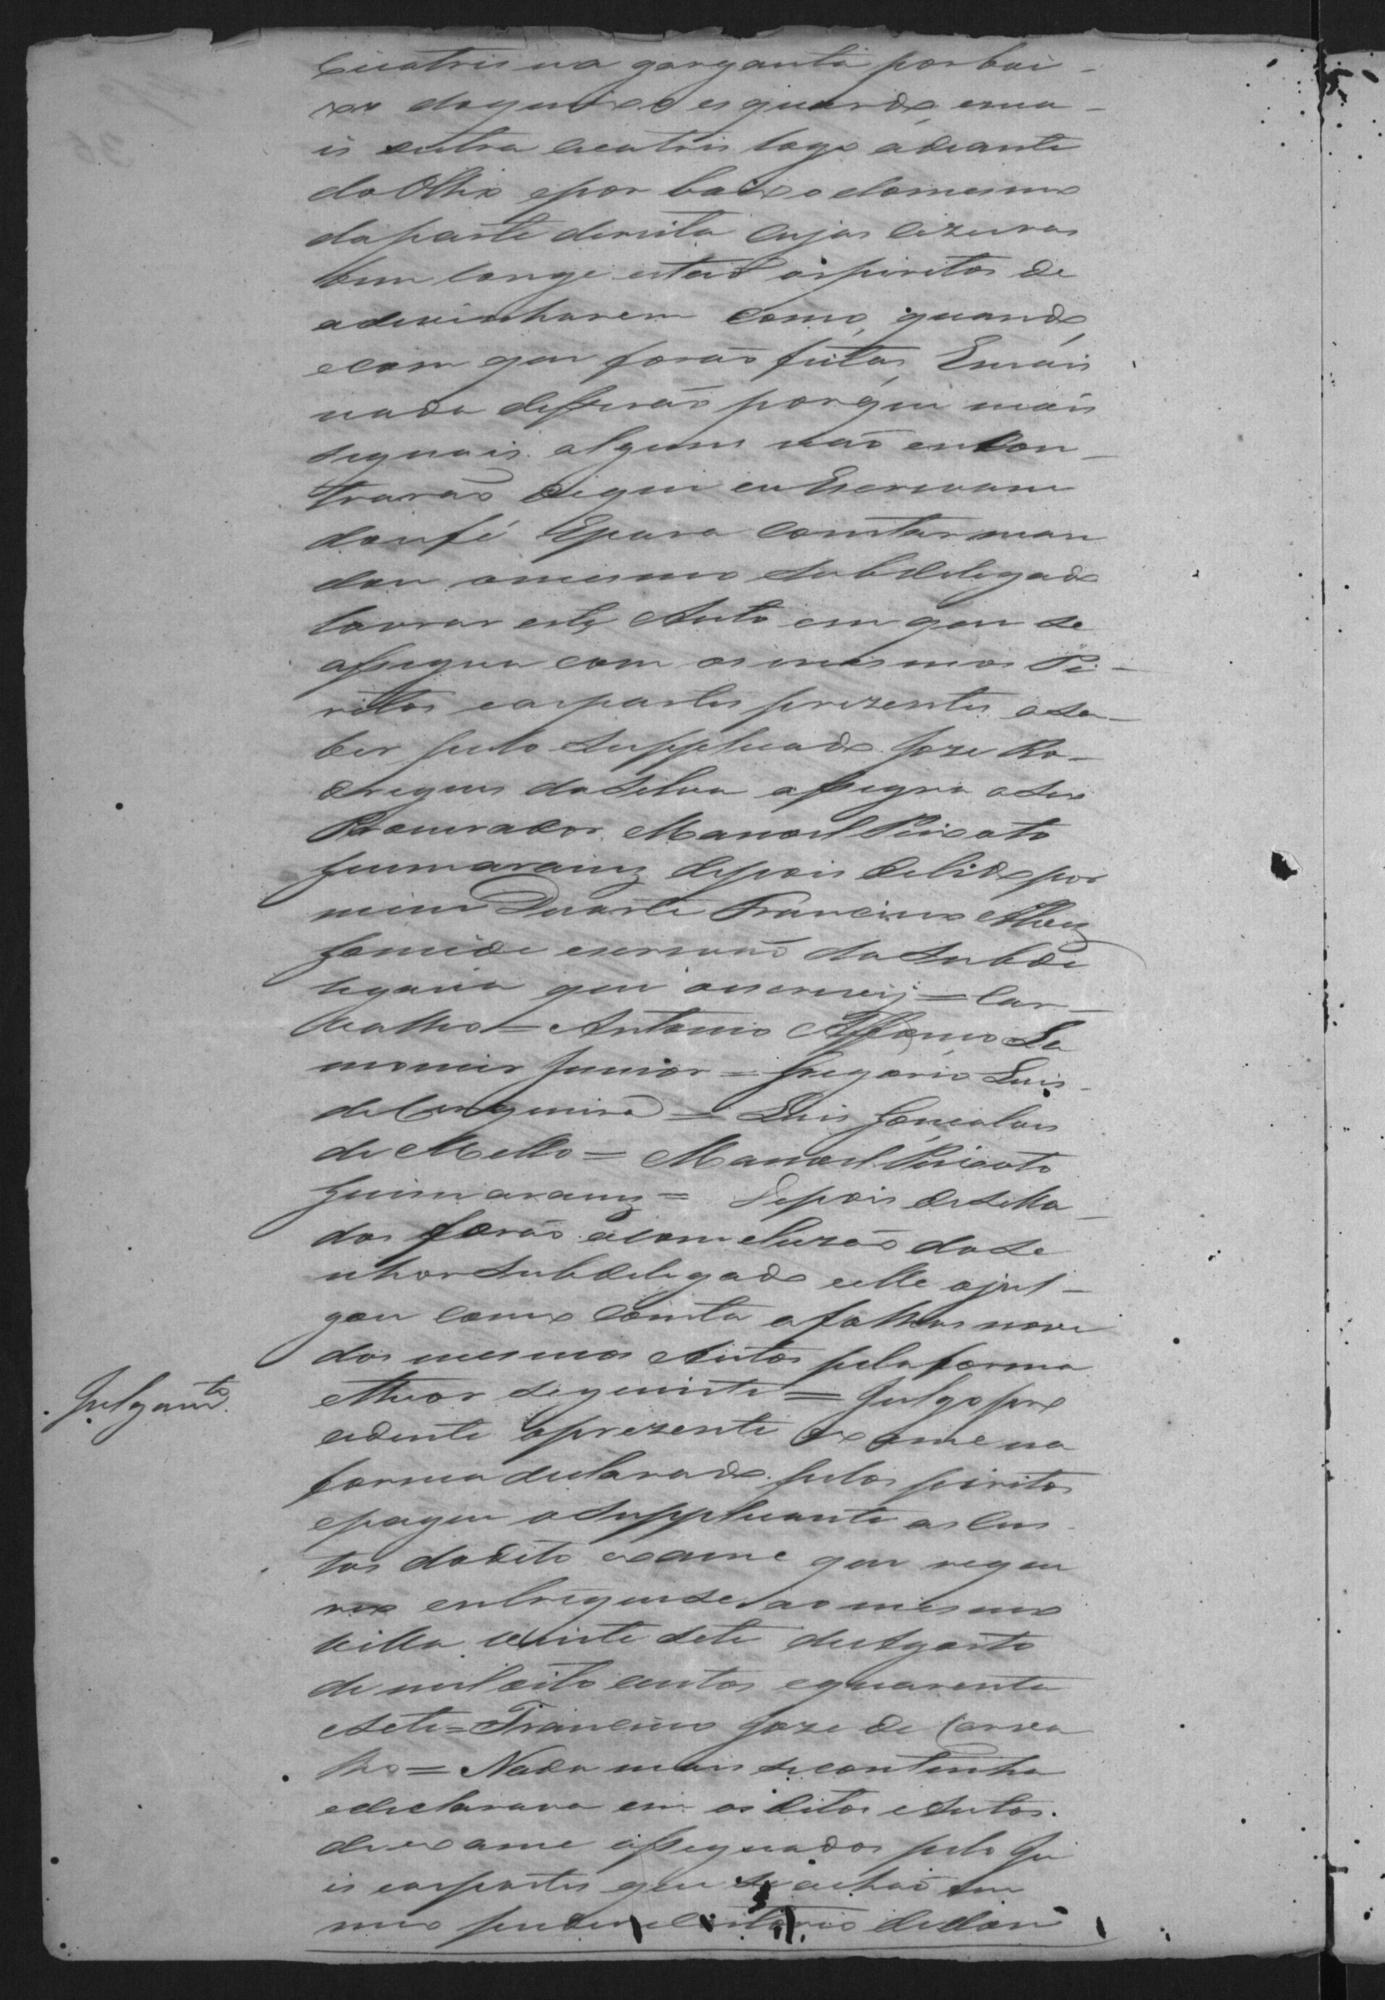 Cicatris na garganta por bai-
xo do queixo esquerdo e ma-
is outra cicatris logo adiante
do Olho e por baixo do mesmo
da parte dereita cujas cizuras
bem longe estaõ os piritos de
adevinharem como, quando,
e com que foraõ feitas, E mais
nada disseraõ porque mais
signais alguns naõ encon-
traraõ de que eu Escrivam
dou fé E para constar man
dou o mesmo Subdelegado
lavrar este Auto em que se
assignou com os mesmos Pi-
ritos e as partes prezentes a sa-
ber pelo Supplicado Joze Ro-
drigues da Silva assignou o seu
Procurador Manoel Peixoto
Guimarainz depois de lido por
mim Duarte Francisco
escrivaõ da Subde
legacia que o escrevij = Car-
valho = Antonio Affonso La
mounier Junior = Gregorio Luis
de Cerqueira = Luis Gonçalves
de Mello = Manoel Peixoto
Guimarainz = Depois de Sella-
dos foraõ a concluzaõ do Se
nhor Subdelegado e elle o jul-
gou como consta a folhas nove
dos mesmos Autos pela forma
e theor seguinte = Julgo pro
Julgam.to
cedente o prezente exame na
forma declarada pelos piritos
e pague o Supplicante as Cus
tas do dito exame que reque
reo entregue-se ao mesmo
Villa vinte sete de Agosto
de mil oito centos e quarenta
e sete = Francisco Joze de Carva
lho = Nada mais se continha
e declarava em os ditos Autos
de exame assignados pelo Ju
is e as partes que se achaõ em
meu poder e Cartorio de donde